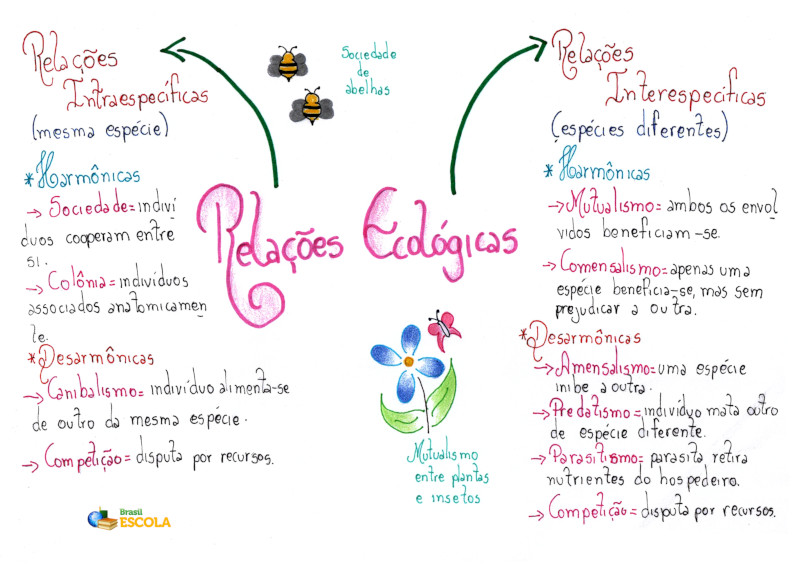 Relações
Intraespecíficas
(mesma espécie)
*Harmônicas
→ Sociedade= indiví
duos cooperam entre
si.
→ Colônia= indivíduos
associados anatomicamen
te.
*Desarmônicas
→ Canibalismo= indivíduo alimenta-se
de outro da mesma espécie.
→ Competição= disputa por recursos.
Sociedade
de
abelhas
Relações Ecológicas
Mutualismo
entre plantas
e insetos
Relações
Interespecíficas
(espécies diferentes)
*Harmônicas
→Mutualismo= ambos os envol
vidos beneficiam-se.
→Comensalismo= apenas uma
espécie beneficia-se, mas sem
prejudicar a outra.
*Desarmônicas
→Amensalismo= uma espécie
inibe a outra.
→Predatismo= indivíduo mata outro
de espécie diferente.
→Parasitismo= parasita retira
nutrientes do hospedeiro.
→Competição= disputa por recursos.
Brasil
ESCOLA